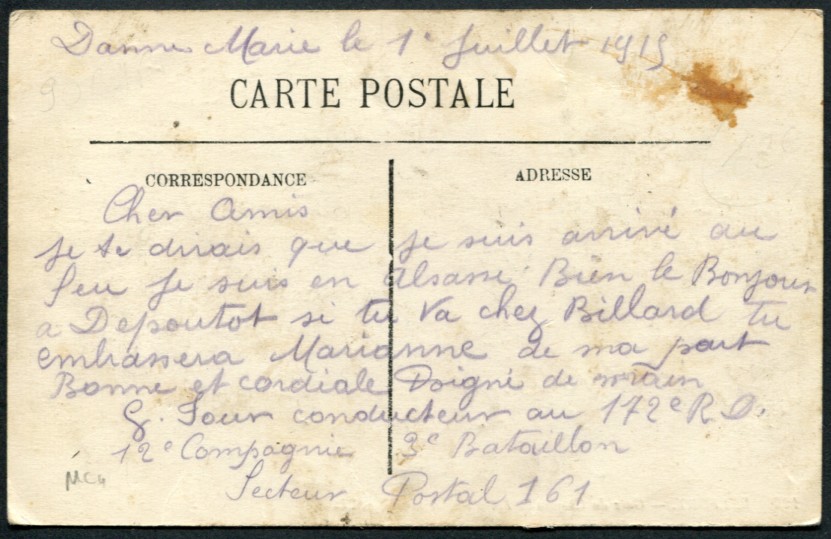 Danne Marie le 1e Juillet 1915
CARTE POSTALE
CORRESPONDANCE
ADRESSE
Cher Amis
je te dirais que je suis arrivé au
feu je suis en Alsasse. Bien le Bonjour
a Depoutot si tu va chez Billard tu
embrassera Marianne de ma part
Bonne et cordiale Poigné de main
G. Jour conducteur au 172e R.
12e Compagnie 3e Bataillon
Secteur Postal 161